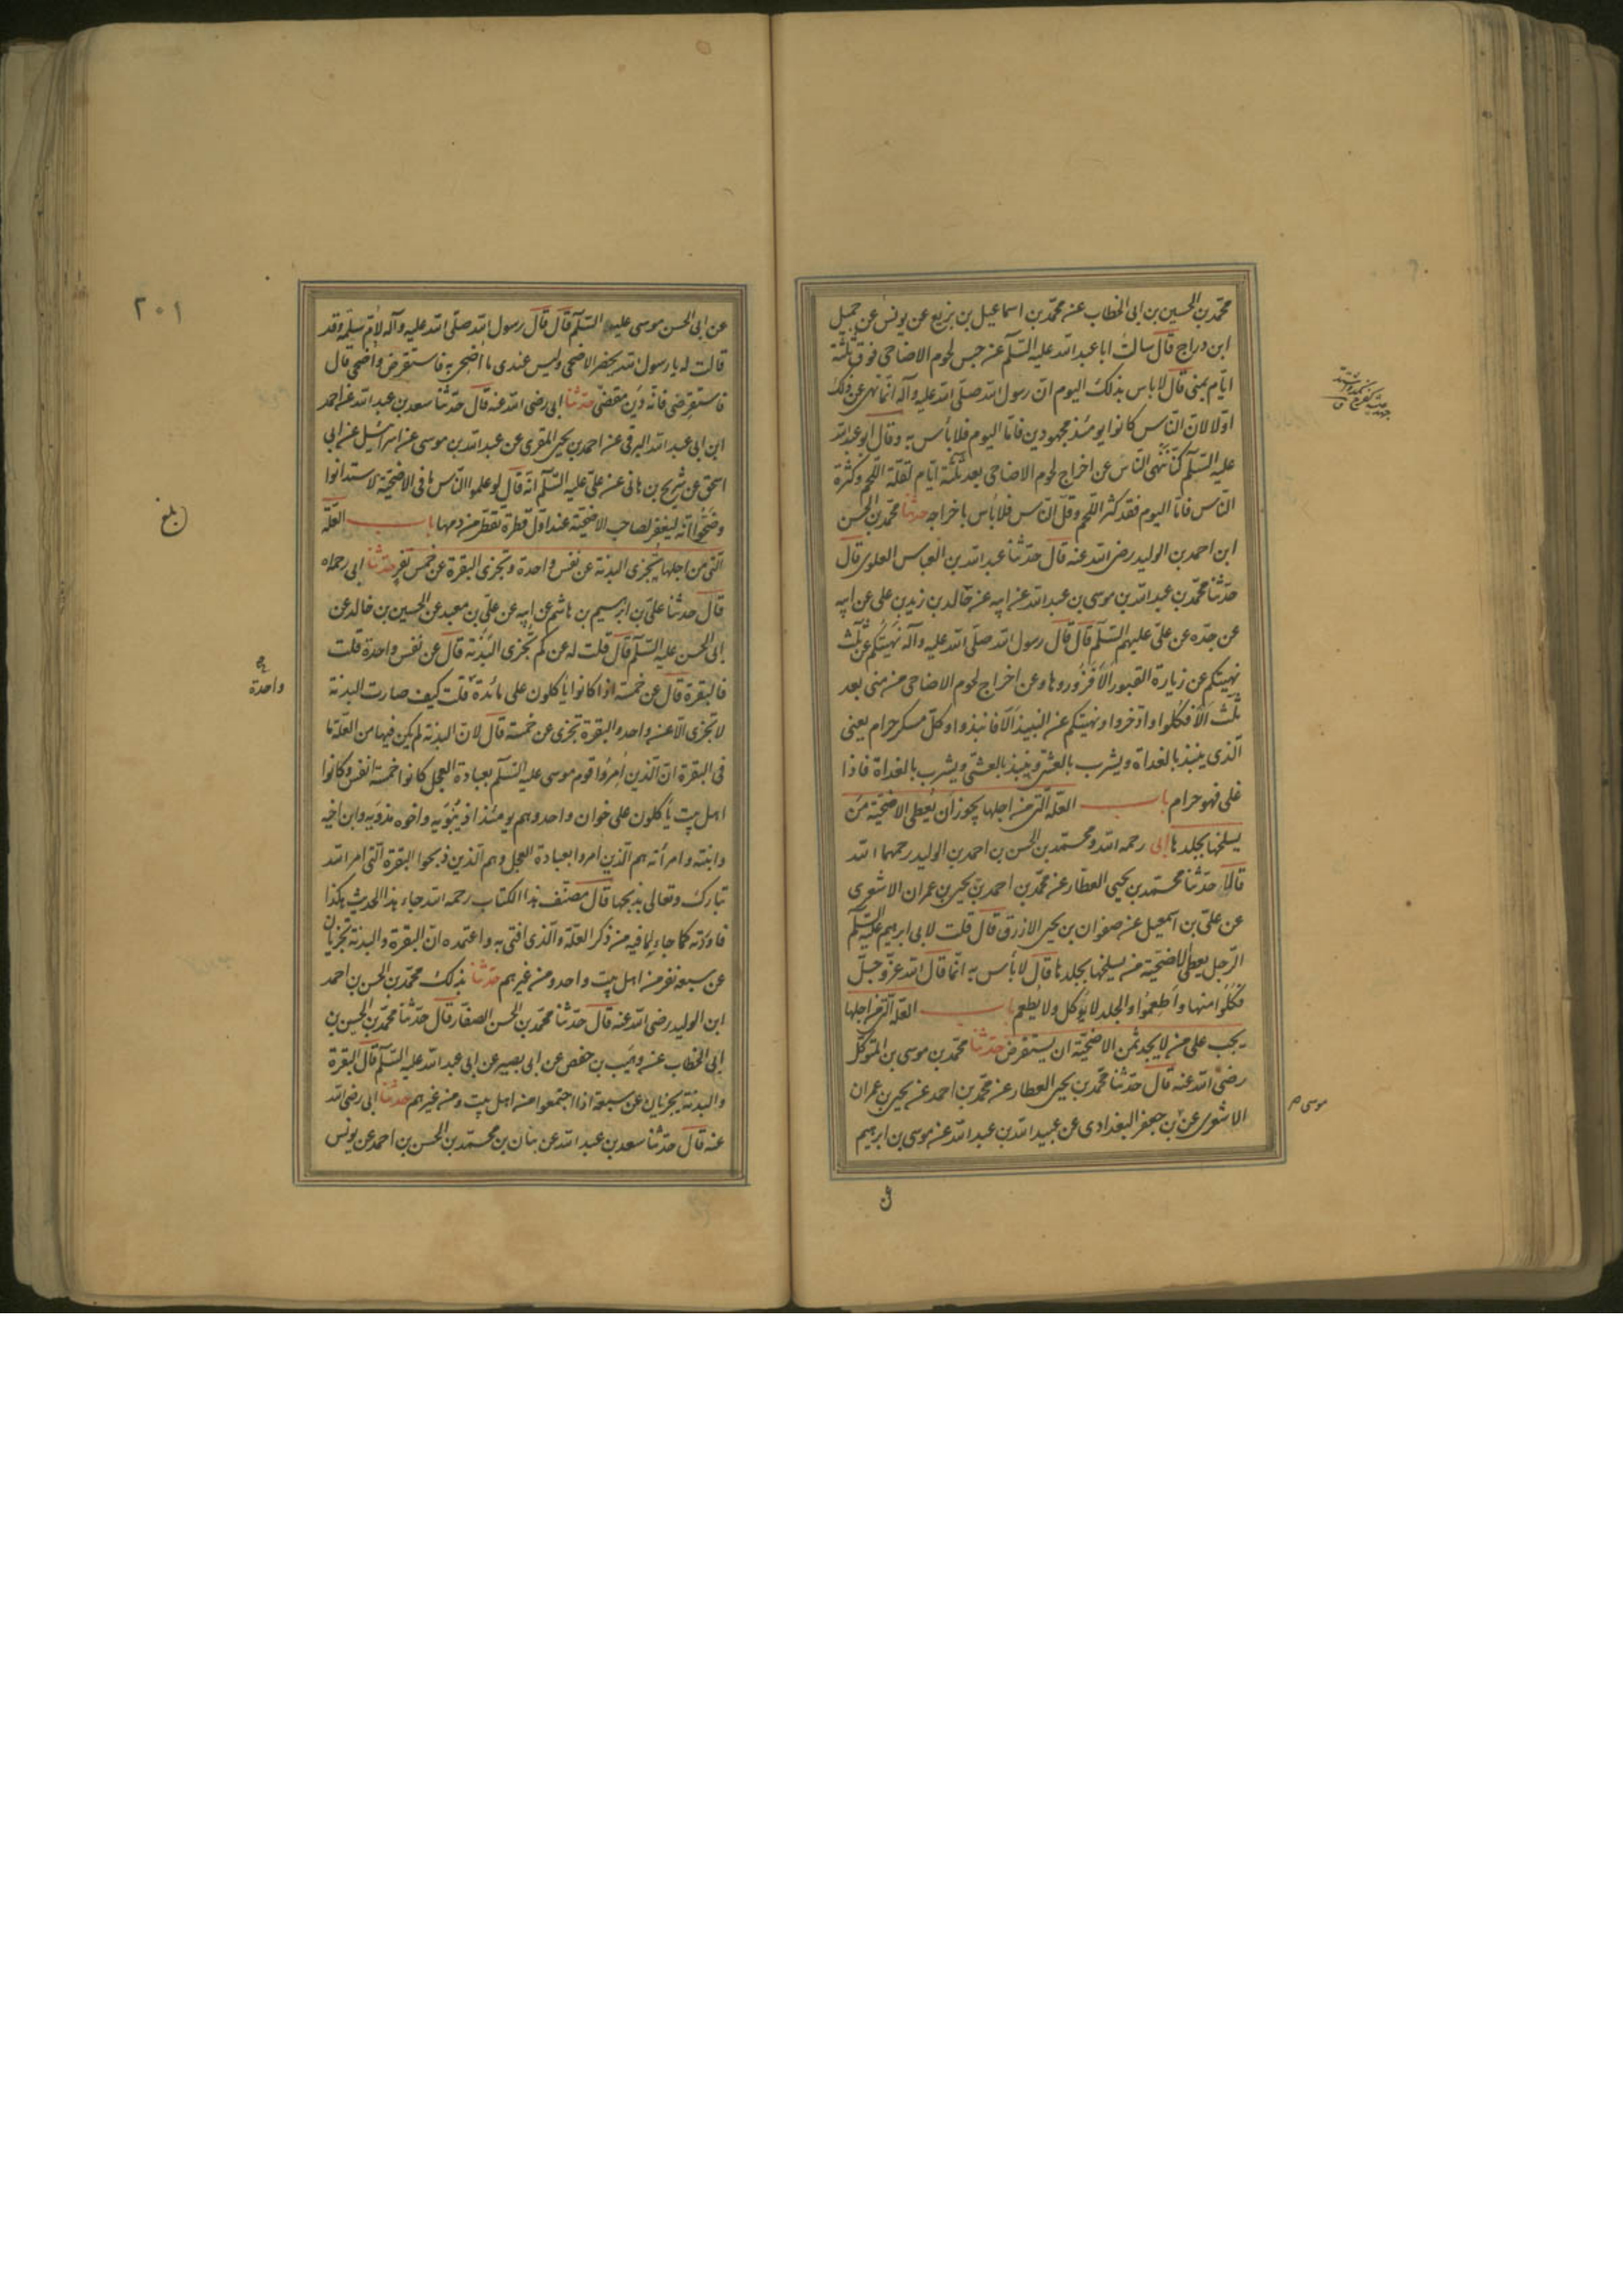 محمد بن الحسين بن ابى الخطاب عن محمد بن اسماعيل بن بزيع عن يونس عن جميل
ابن دراج قال سالت ابا عبد الله عليه السلم عن حبس لحوم الاضاحى فوق ثلثة
ايام بمنى قال لا باس بذلك اليوم ان رسول الله صلى الله عليه وآله انما نهى عن ذلك
اولا لان الناس كانوا يومئذ مجهودين فاما اليوم فلا بأس به وقال ابو عبد الله
عليه السلم كنا ننهى الناس عن اخراج لحوم الاضاحى بعد ثلثة ايام لقلة اللحم وكثرة
الناس فاما اليوم فقد كثر اللحم وقل الناس فلا بأس باخراجه حدثنا محمد بن الحسن
ابن احمد بن الوليد رضى الله عنه قال حدثنا عبد الله بن العباس العلوى قال
حدثنا محمد بن عبد الله بن موسى بن عبد الله عن ابيه عن خالد بن زيد بن على عن ابيه
عن جده عن على عليهم السلم قال قال رسول الله صلى الله عليه وآله نهيتكم عن ثلث
نهيتكم عن زيارة القبور الا فزوروها وعن اخراج لحوم الاضاحى من منى بعد
ثلث الا فكلوا وادخروا ونهيتكم عن النبيذ الا فانبذوا وكل مسكر حرام يعنى
الذى ينبذ بالغداة ويشرب بالعشى وينبذ بالعشى ويشرب بالغداة فاذا
غلى فهو حرام باب العلة التى من اجلها يجوز ان يعطى الاضحية من
يسلخها بجلدها ابى رحمه الله ومحمد بن الحسن بن احمد بن الوليد رحمهما الله
قالا حدثنا محمد بن يحيى العطار عن محمد بن احمد بن يحيى بن عمران الاشعرى
عن على بن اسمعيل عن صفوان بن يحيى الازرق قال قلت لابى ابرهيم عليه السلم
الرجل يعطى الاضحية من يسلخها بجلدها قال لا بأس به انما قال الله عز وجل
فكلوا منها واطعموا والجلد لا يؤكل ولا يطعم باب العلة التى من اجلها
يجب على من لا يجد ثمن الاضحية ان يستقرض حدثنا محمد بن موسى بن المتوكل
رضى الله عنه قال حدثنا محمد بن يحيى العطار عن محمد بن احمد عن يحيى بن عمران
الاشعرى عن بن جعفر البغدادى عن عبيد الله بن عبد الله عن موسى بن ابرهيم
موسى صح
عن ابى الحسن موسى عليه السلم قال قال رسول الله صلى الله عليه وآله لام سلمة وقد
قالت له يا رسول الله يحضر الاضحى وليس عندى ما اضحى به فاستقرض واضحى قال
فاستقرضى فانه دين مقضى حدثنا ابى رضى الله عنه قال حدثنا سعد بن عبد الله عن احمد
ابن ابى عبد الله البرقى عن احمد بن يحيى المقرى عن عبد الله بن موسى عن اسرائيل عن ابى
اسحق عن شريح بن هانى عن على عليه السلم انه قال لو علموا الناس ما فى الاضحية لاستدانوا
وضحوا انه ليغفر لصاحب الاضحية عند اول قطرة تقطر من دمها باب العلة
التى من اجلها تجزى البدنة عن نفس واحدة وتجزى البقرة عن خمس نفر حدثنا ابى رحمه الله
قال حدثنا على بن ابرهيم بن هاشم عن ابيه عن على بن معبد عن الحسين بن خالد عن
ابى الحسن عليه السلم قال قلت له عن كم تجزى البدنة قال عن نفس واحدة قلت
فالبقرة قال عن خمسة اذا كانوا يأكلون على مائدة قلت كيف صارت البدنة
لا تجزى الا عن واحد والبقرة تجزى عن خمسة قال لان البدنة لم يكن فيها من العلة ما
فى البقرة ان الذين امروا قوم موسى عليه السلم بعبادة العجل كانوا خمسة انفس وكانوا
اهل بيت يأكلون على خوان واحد وهم يومئذ اذينويه واخوه مذويه وابن اخيه
وابنته وامرأته هم الذين امروا بعبادة العجل وهم الذين ذبحوا البقرة التى امر الله
تبارك وتعالى بذبحها قال مصنف هذا الكتاب رحمه الله جاء هذا الحديث هكذا
فاوردته كما جاء لما فيه من ذكر العلة والذى افتى به واعتمده ان البقرة والبدنة تجزيان
عن سبعة نفر من اهل بيت واحد ومن غيرهم حدثنا بذلك محمد بن الحسن بن احمد
ابن الوليد رضى الله عنه قال حدثنا محمد بن الحسن الصفار قال حدثنا محمد بن الحسين بن
ابى الخطاب عن وهيب بن حفص عن ابى بصير عن ابى عبد الله عليه السلم قال البقرة
والبدنة يجزيان عن سبعة اذا اجتمعوا من اهل بيت ومن غيرهم حدثنا ابى رضى الله
عنه قال حدثنا سعد بن عبد الله عن بنان بن محمد بن الحسن بن احمد عن يونس
٢٠١
بلغ
واحدة